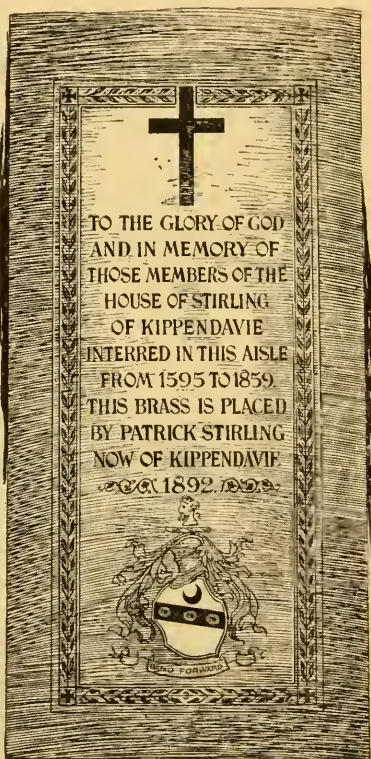 TO THE GLORY OF GOD
AND IN MEMORY OF
THOSE MEMBERS OF THE
HOUSE OF STIRLING
OF KIPPENDAVIE
INTERRED IN THIS AISLE
FROM 1595 TO 1859.
THIS BRASS IS PLACED
BY PATRICK STIRLING
NOW OF KIPPENDAVIE
1892.
FORWARD